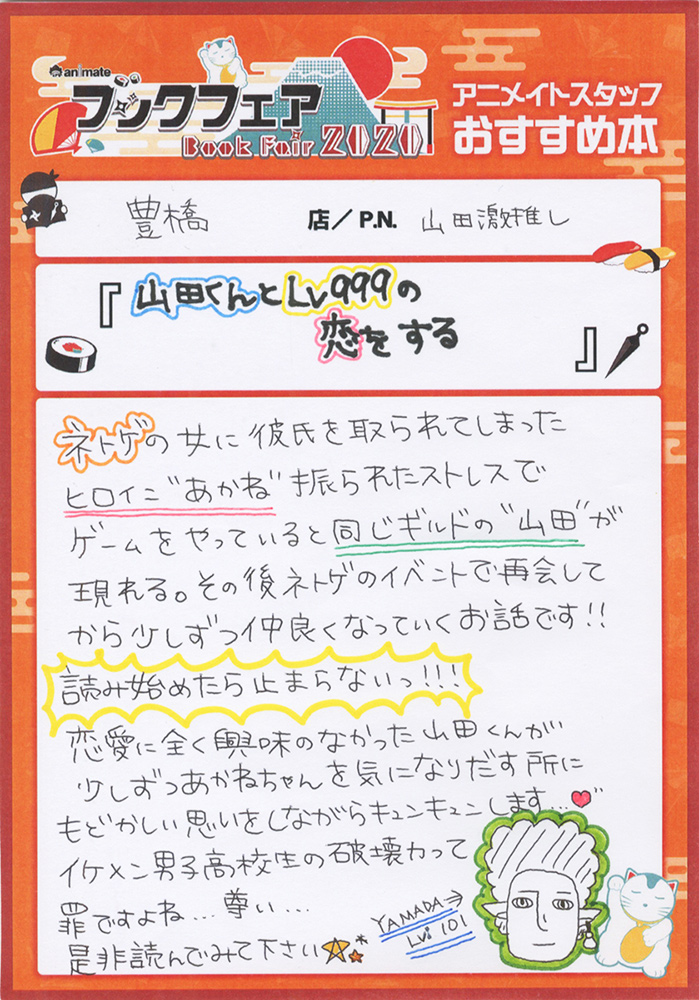 animate
ブックフェア
Book Fair 2020
アニメイトスタッフ
おすすめ本
豊橋 店／P.N. 山田激推し
『山田くんとLv999の
恋をする』
ネトゲの女に彼氏を取られてしまった
ヒロイン"あかね"振られたストレスで
ゲームをやっていると同じギルドの"山田"が
現れる。その後ネトゲのイベントで再会して
から少しずつ仲良くなっていくお話です!!
読み始めたら止まらないっ!!!
恋愛に全く興味のなかった山田くんが
少しずつあかねちゃんを気になりだす所に
もどかしい思いをしながらキュンキュンします...
イケメン男子高校生の破壊力って
罪ですよね...尊い...
是非読んでみて下さい
YAMADA→
Lv. 101